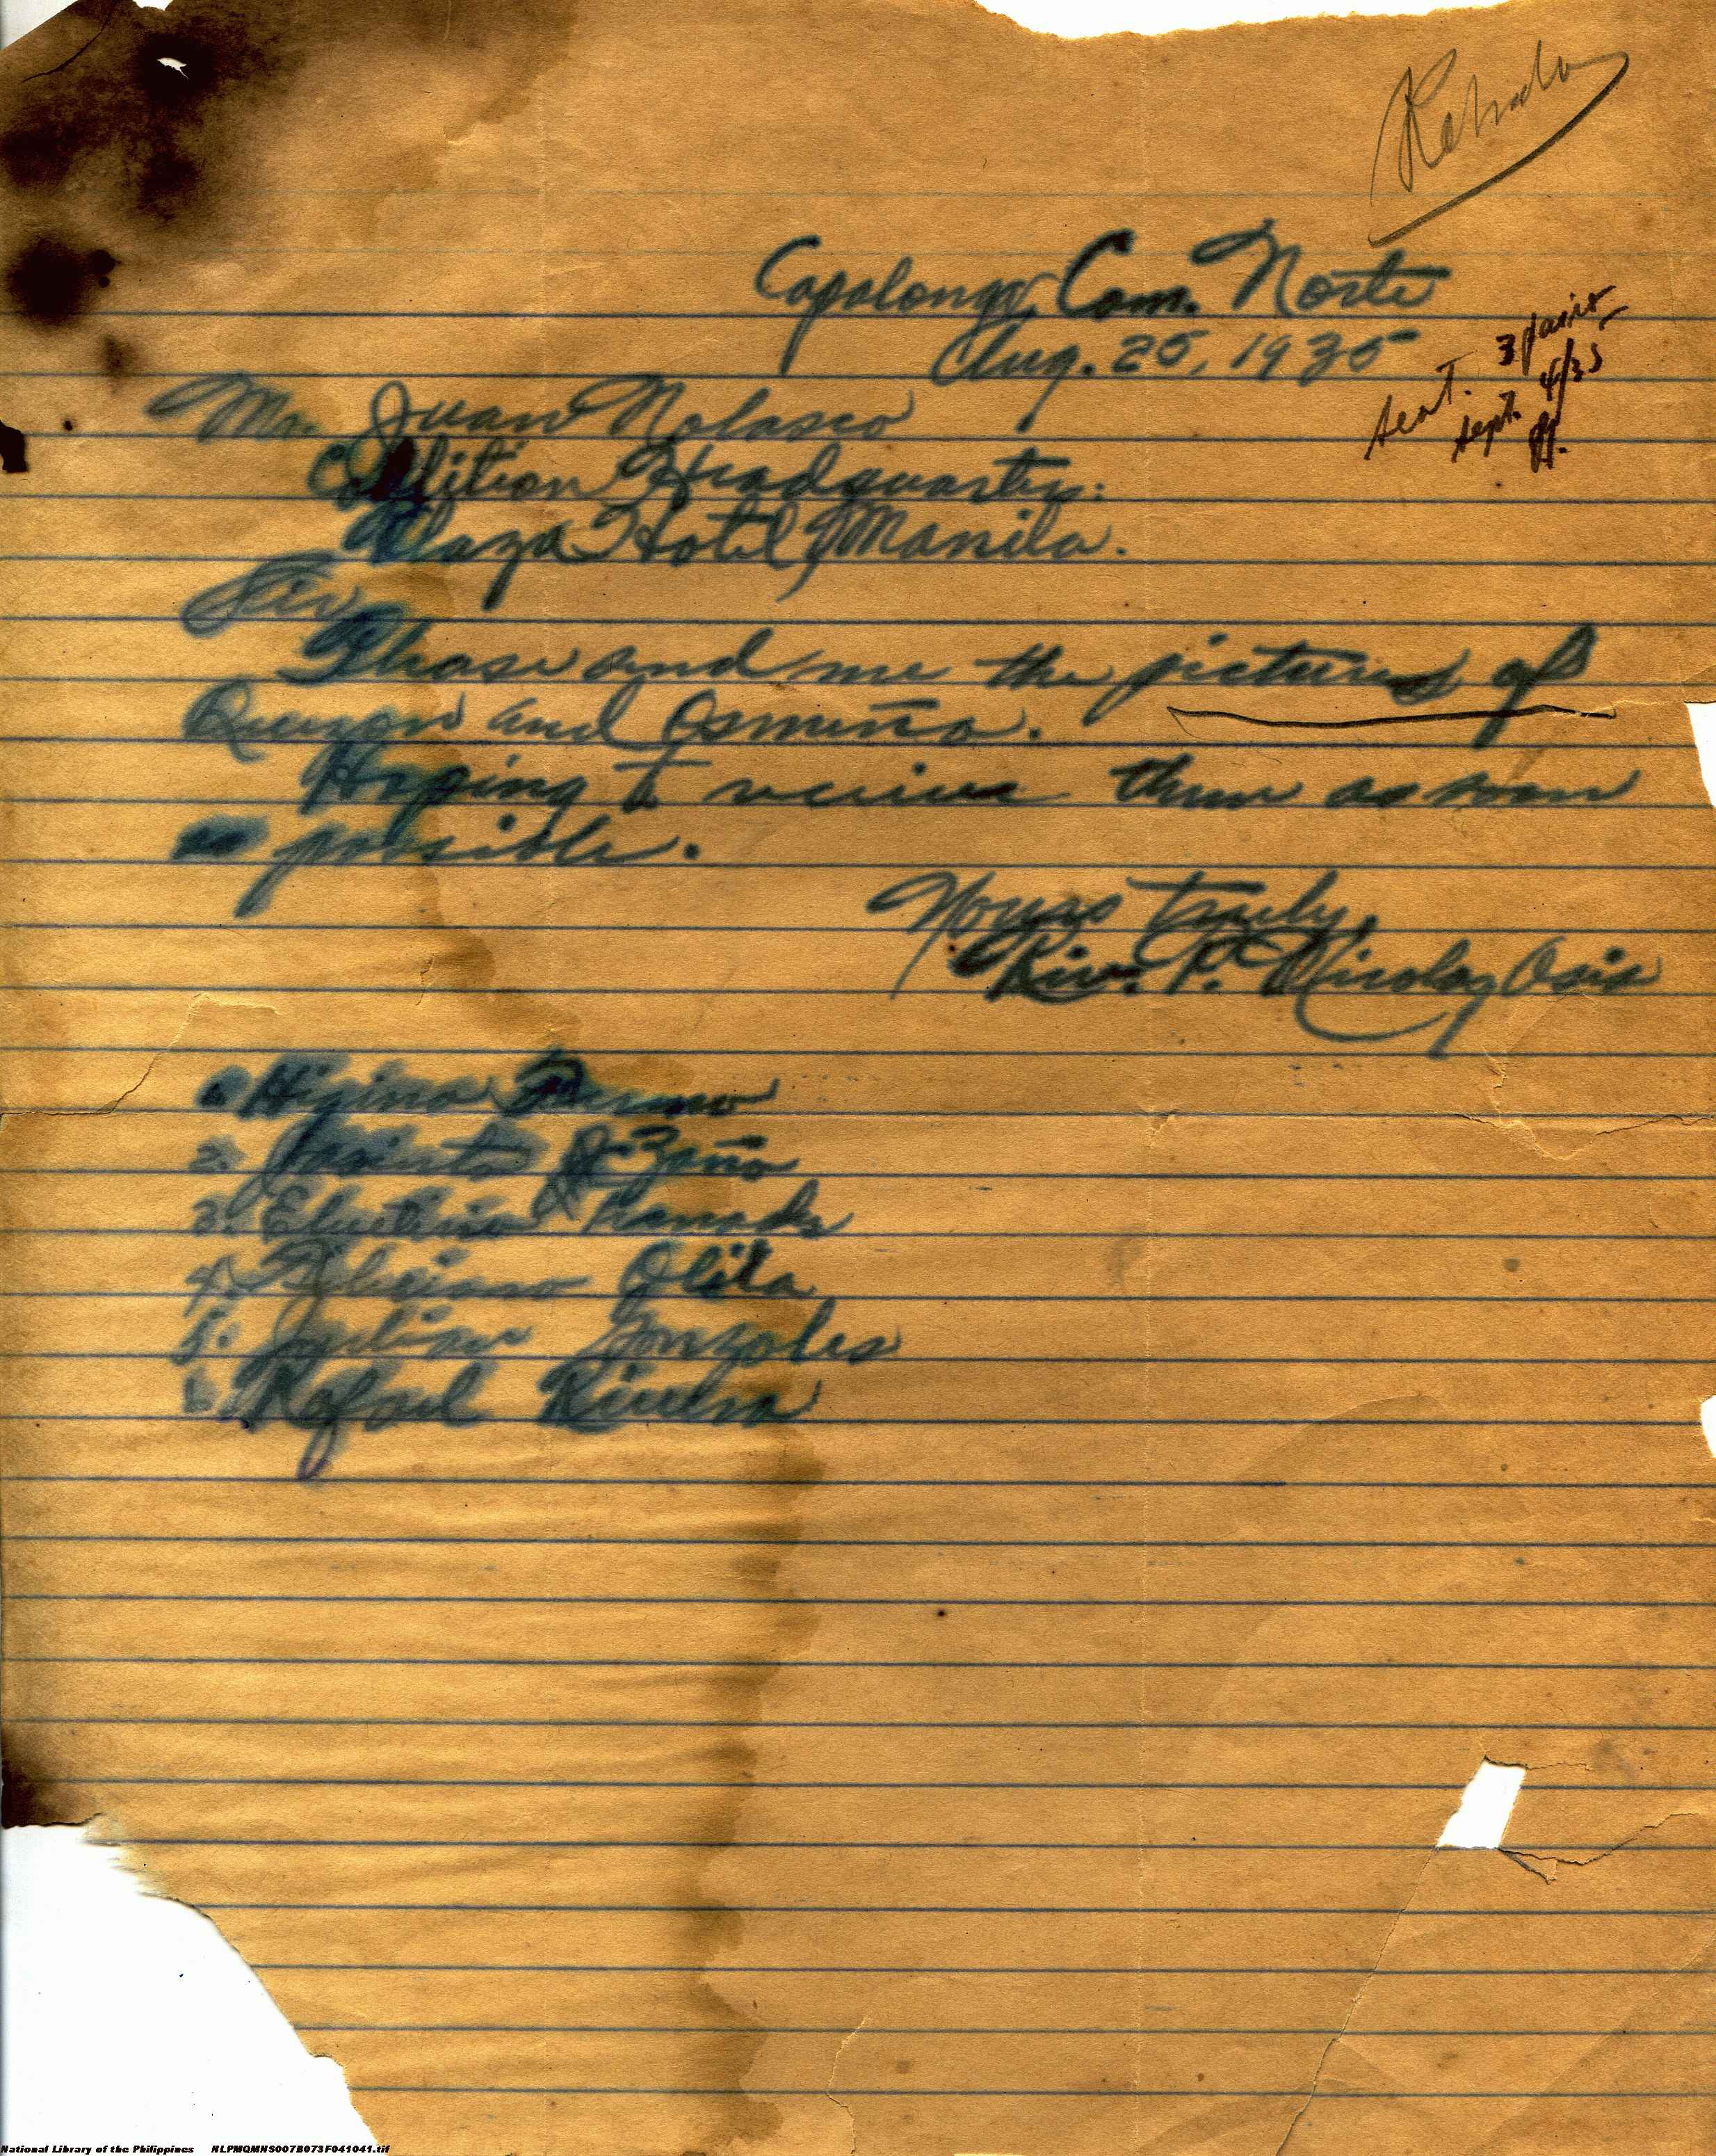 Capalonga, Cam. Norte
Aug. 25, 1935
sent. 3 pairs
Sept. 4/35
Mr. Juan Nolasco
Coalition Headquarters:
Plaza Hotel, Manila.
Sir
Please send me the pictures of
Quezon and Osmeña.
Hoping to receive them as soon
as possible.
Yours truly,
Rev. P. Nicolas Osis
Higino
2.
3. Eluterio
4. Feliciano Olila
5. Gonzales
6. Rafael Rivera
National Library of the Philippines NLPMQMNS007B073F041041.tif